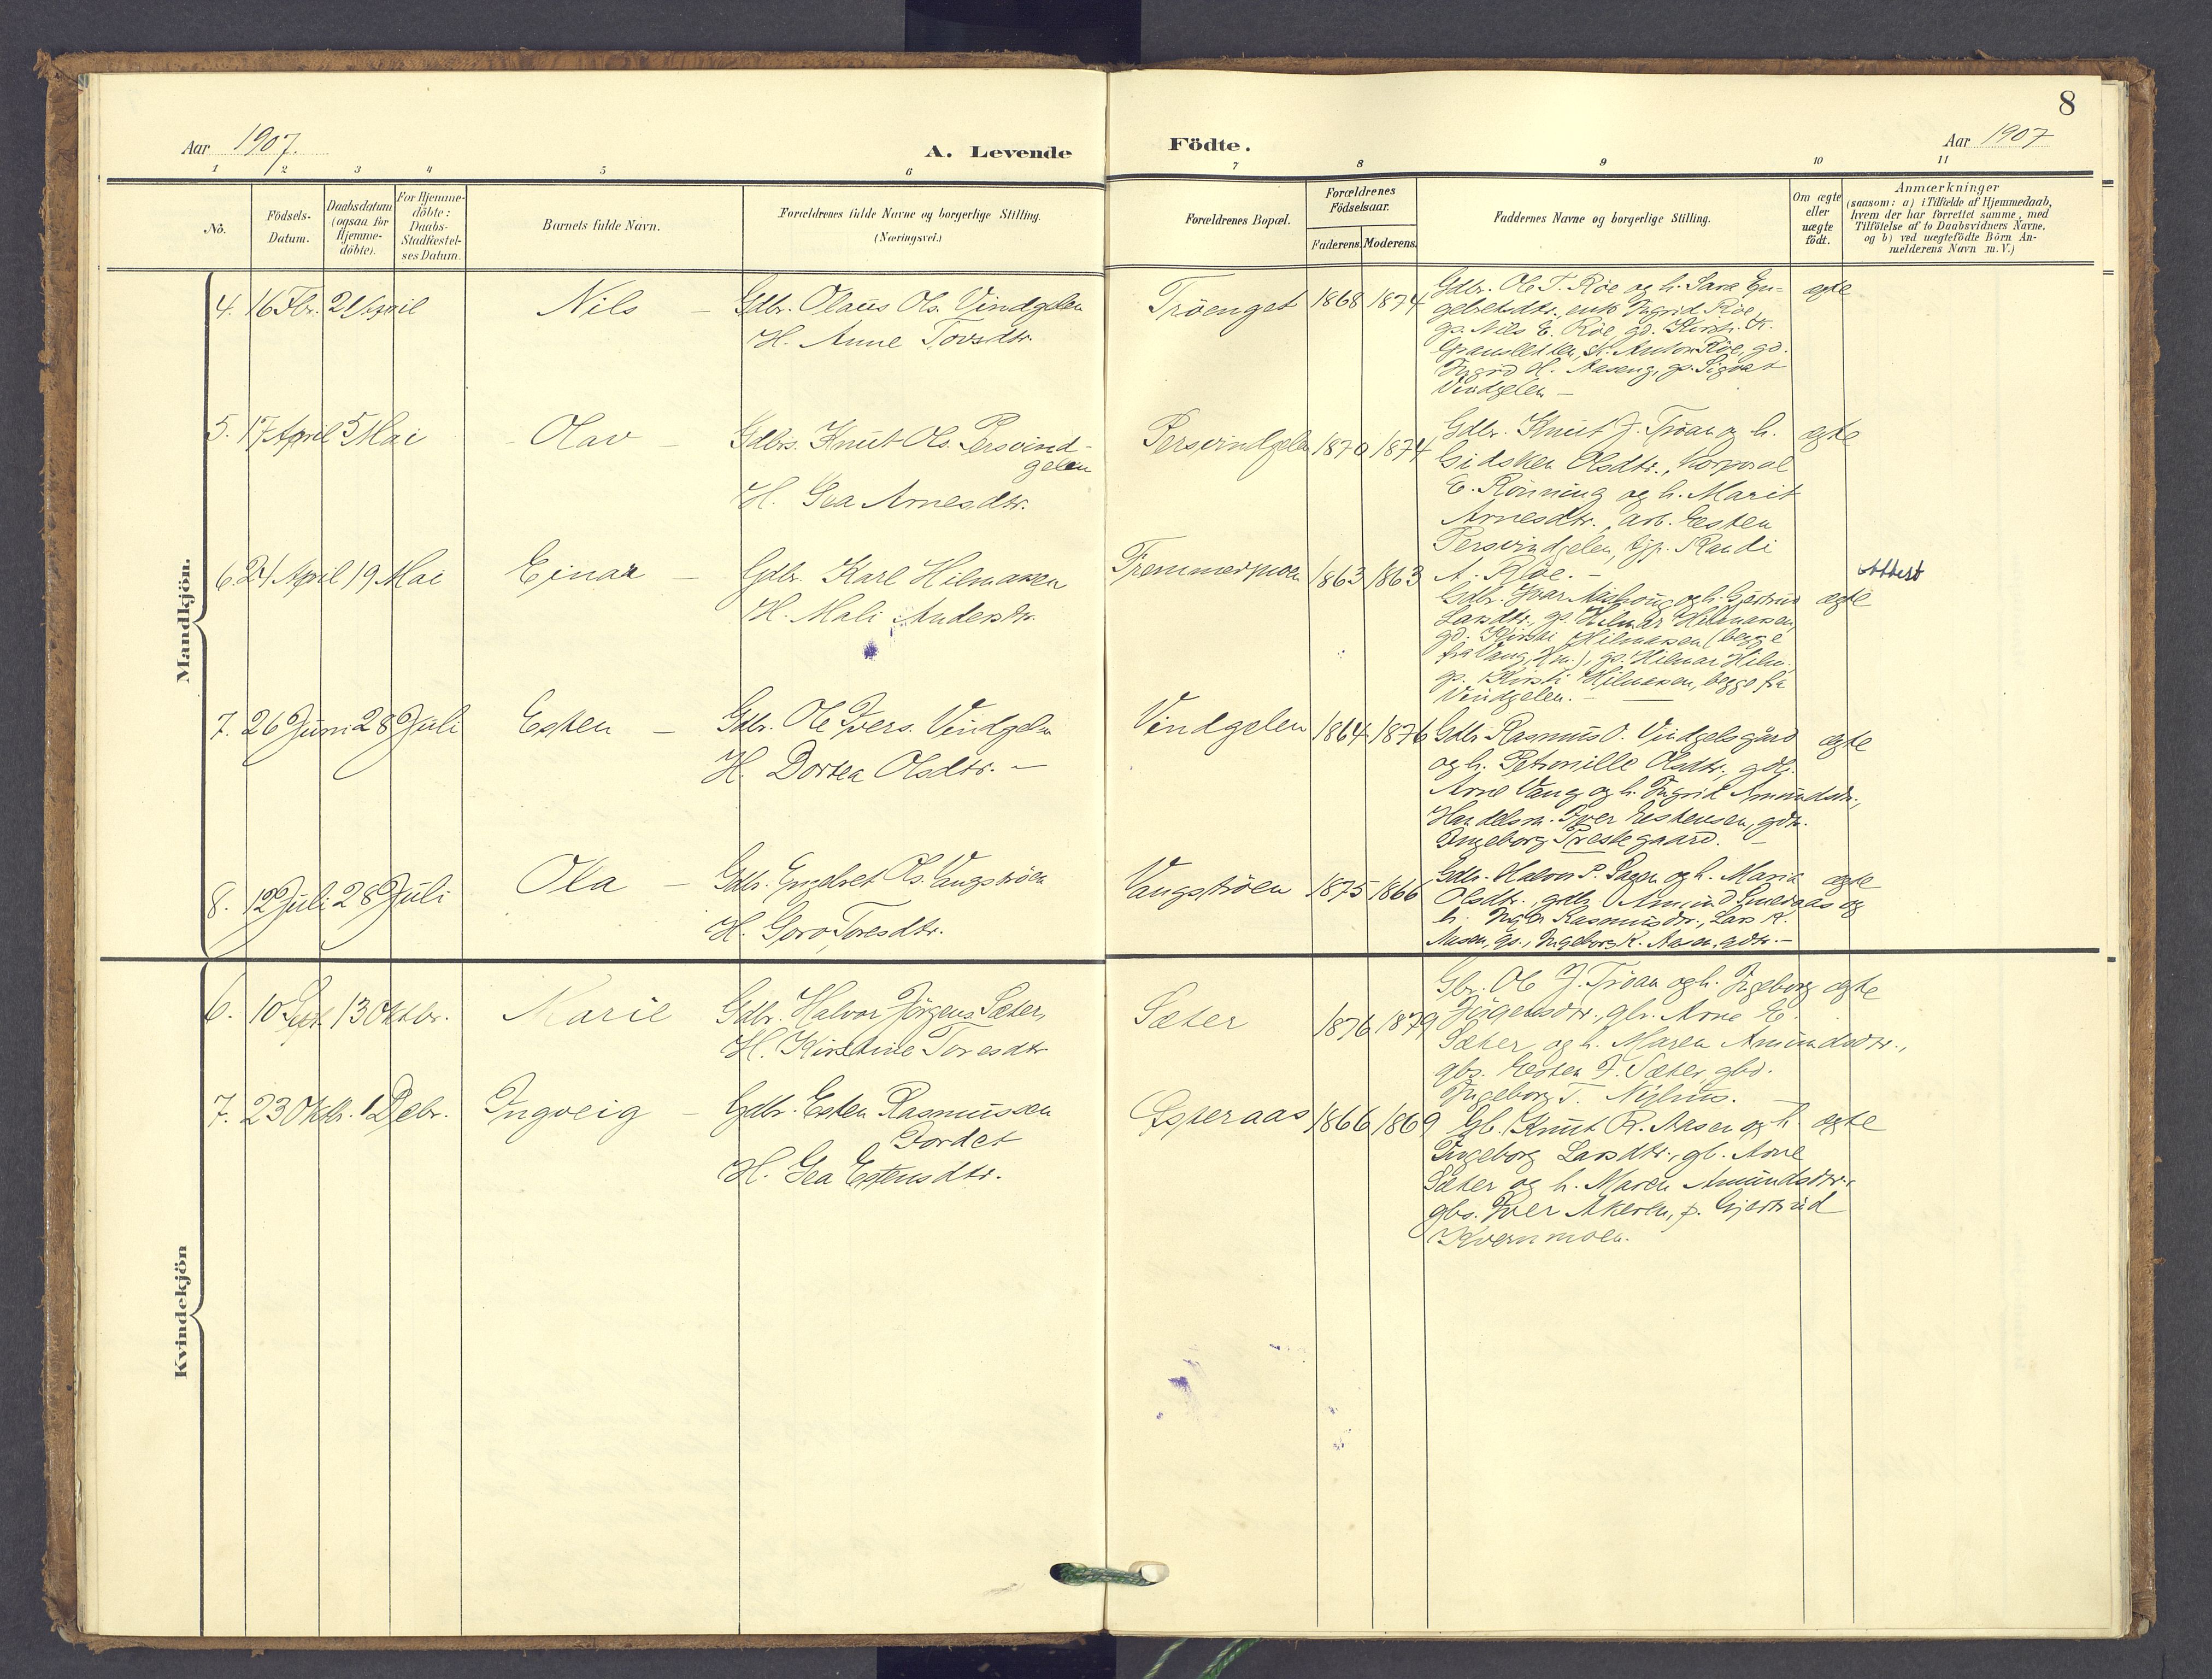 8
Aar 1907.
A. Levende
Födte.
Aar 1907
1 2 3 4 5 6 7 8 9 10 11
No.
Födsels-
Datum.
Daabsdatum
(ogsaa for
Hjemme-
döbte).
For Hjemme-
döbte:
Daabs-
Stadfæstel-
ses Datum.
Barnets fulde Navn.
Forældrenes fulde Navne og borgerlige Stilling.
(Næringsvei.)
Forældrenes Bopæl.
Forældrenes
Födselsaar.
Faderens. Moderens.
Faddernes Navne og borgerlige Stilling.
Om ægte
eller
uægte
födt.
Anmærkninger
(saasom: a) i Tilfælde af Hjemmedaab,
hvem der har forrettet samme, med
Tilföielse af to Daabsvidners Navne,
og b) ved uægtefödte Börn An-
melderens Navn m. V.)
Mandkjön.
4. 16 Fbr. 21 April Nils –
Gdbr. Olaus Ols. Vindgelen
H. Anne Tovsdtr.
Tröenget 1868 1874
Gdbr. Ole T. Röe og h. Sara En-
gebretsdtr., enk. Ingrid Röe,
gs. Nils E. Röe, gd. Kirsti K.
Gransletten, st. Anton Röe, gd.
Ingrid H. Aaseng, gs. Sigvat
Vindgelen –
ægte
5. 17 April 5 Mai Olav –
Gdbr. Knut Ols. Persvind-
gelen
H. Gea Arnesdtr.
Persvindgelen 1870 1874
Gdbr. Knut J. Tröan og h.
Gidsken Olsdtr., Korporal
E. Rönning og h. Marit
Arnesdtr., arb. Esten
Persvindgelen, tjp. Randi
A. Röe. –
ægte
6. 24 April 19 Mai Einar –
Gdbr. Karl Hilmarsen
H. Mali Andersdtr.
Fremmermoen 1863 1863
Gdbr. Ivar Aashoug og h. Gjertrud
Larsdtr., gs. Hilmar Hilmarsen,
gd. Kirsti Hilmarsen (begge
fra Vang, Hm.), gs. Hilmar Hilm.
gs. Kirsti Hilmarsen, begge fra
Vindgelen. –
ægte
Attest
7. 26 Juni 28 Juli Esten –
Gdbr. Ole Ivers. Vindgelen
H. Dortea Olsdtr. –
Vindgelen 1864 1876
Gdbr. Rasmus O. Vindgelsgård
og h. Petronille Olsdtr., gdb.
Arne Vang og h. Ingrid Amundsdtr.,
Handelsm. Iver Estensen, gdtr.
Ingeborg Prestegaard. –
ægte
8. 12 Juli 28 Juli Ola –
Gdbr. Engebret Ols. Vangströen
H. Goro Toresdtr.
Vangströen 1875 1866
Gdbr. Halvor P. Sagen og h. Maria
Olsdtr., gdbr. Amund Smedaas og
h. Inger Rasmusdtr., Lars K.
Aasen, gs., Ingeborg K. Aasen, gdtr. –
ægte
Kvindekjön
6. 10 Sept. 13 Oktbr. Marie
Gdbr. Halvor Jörgens. Sæter,
H. Kirstine Toresdtr
Sæter 1876 1879
Gbr. Ole J. Tröan og h. Ingeborg
Jörgensdtr., gbr. Arne E.
Sæter og h. Maren Amundsdtr.,
gbs. Esten J. Sæter, gbd.
Ingeborg T. Nyhus.
ægte
7. 23 Oktbr. 1 Debr. Ingveig –
Gdbr. Esten Rasmussen
Jordet
H. Gea Estensdtr.
Österaas 1866 1869
Gb. Knut R. Aasen og h
Ingeborg Larsdtr., gb. Arne
Sæter og h. Maren Amundsdtr.,
gbs. Iver Akeren, p. Gjertrud
Kvernmoen.
ægte